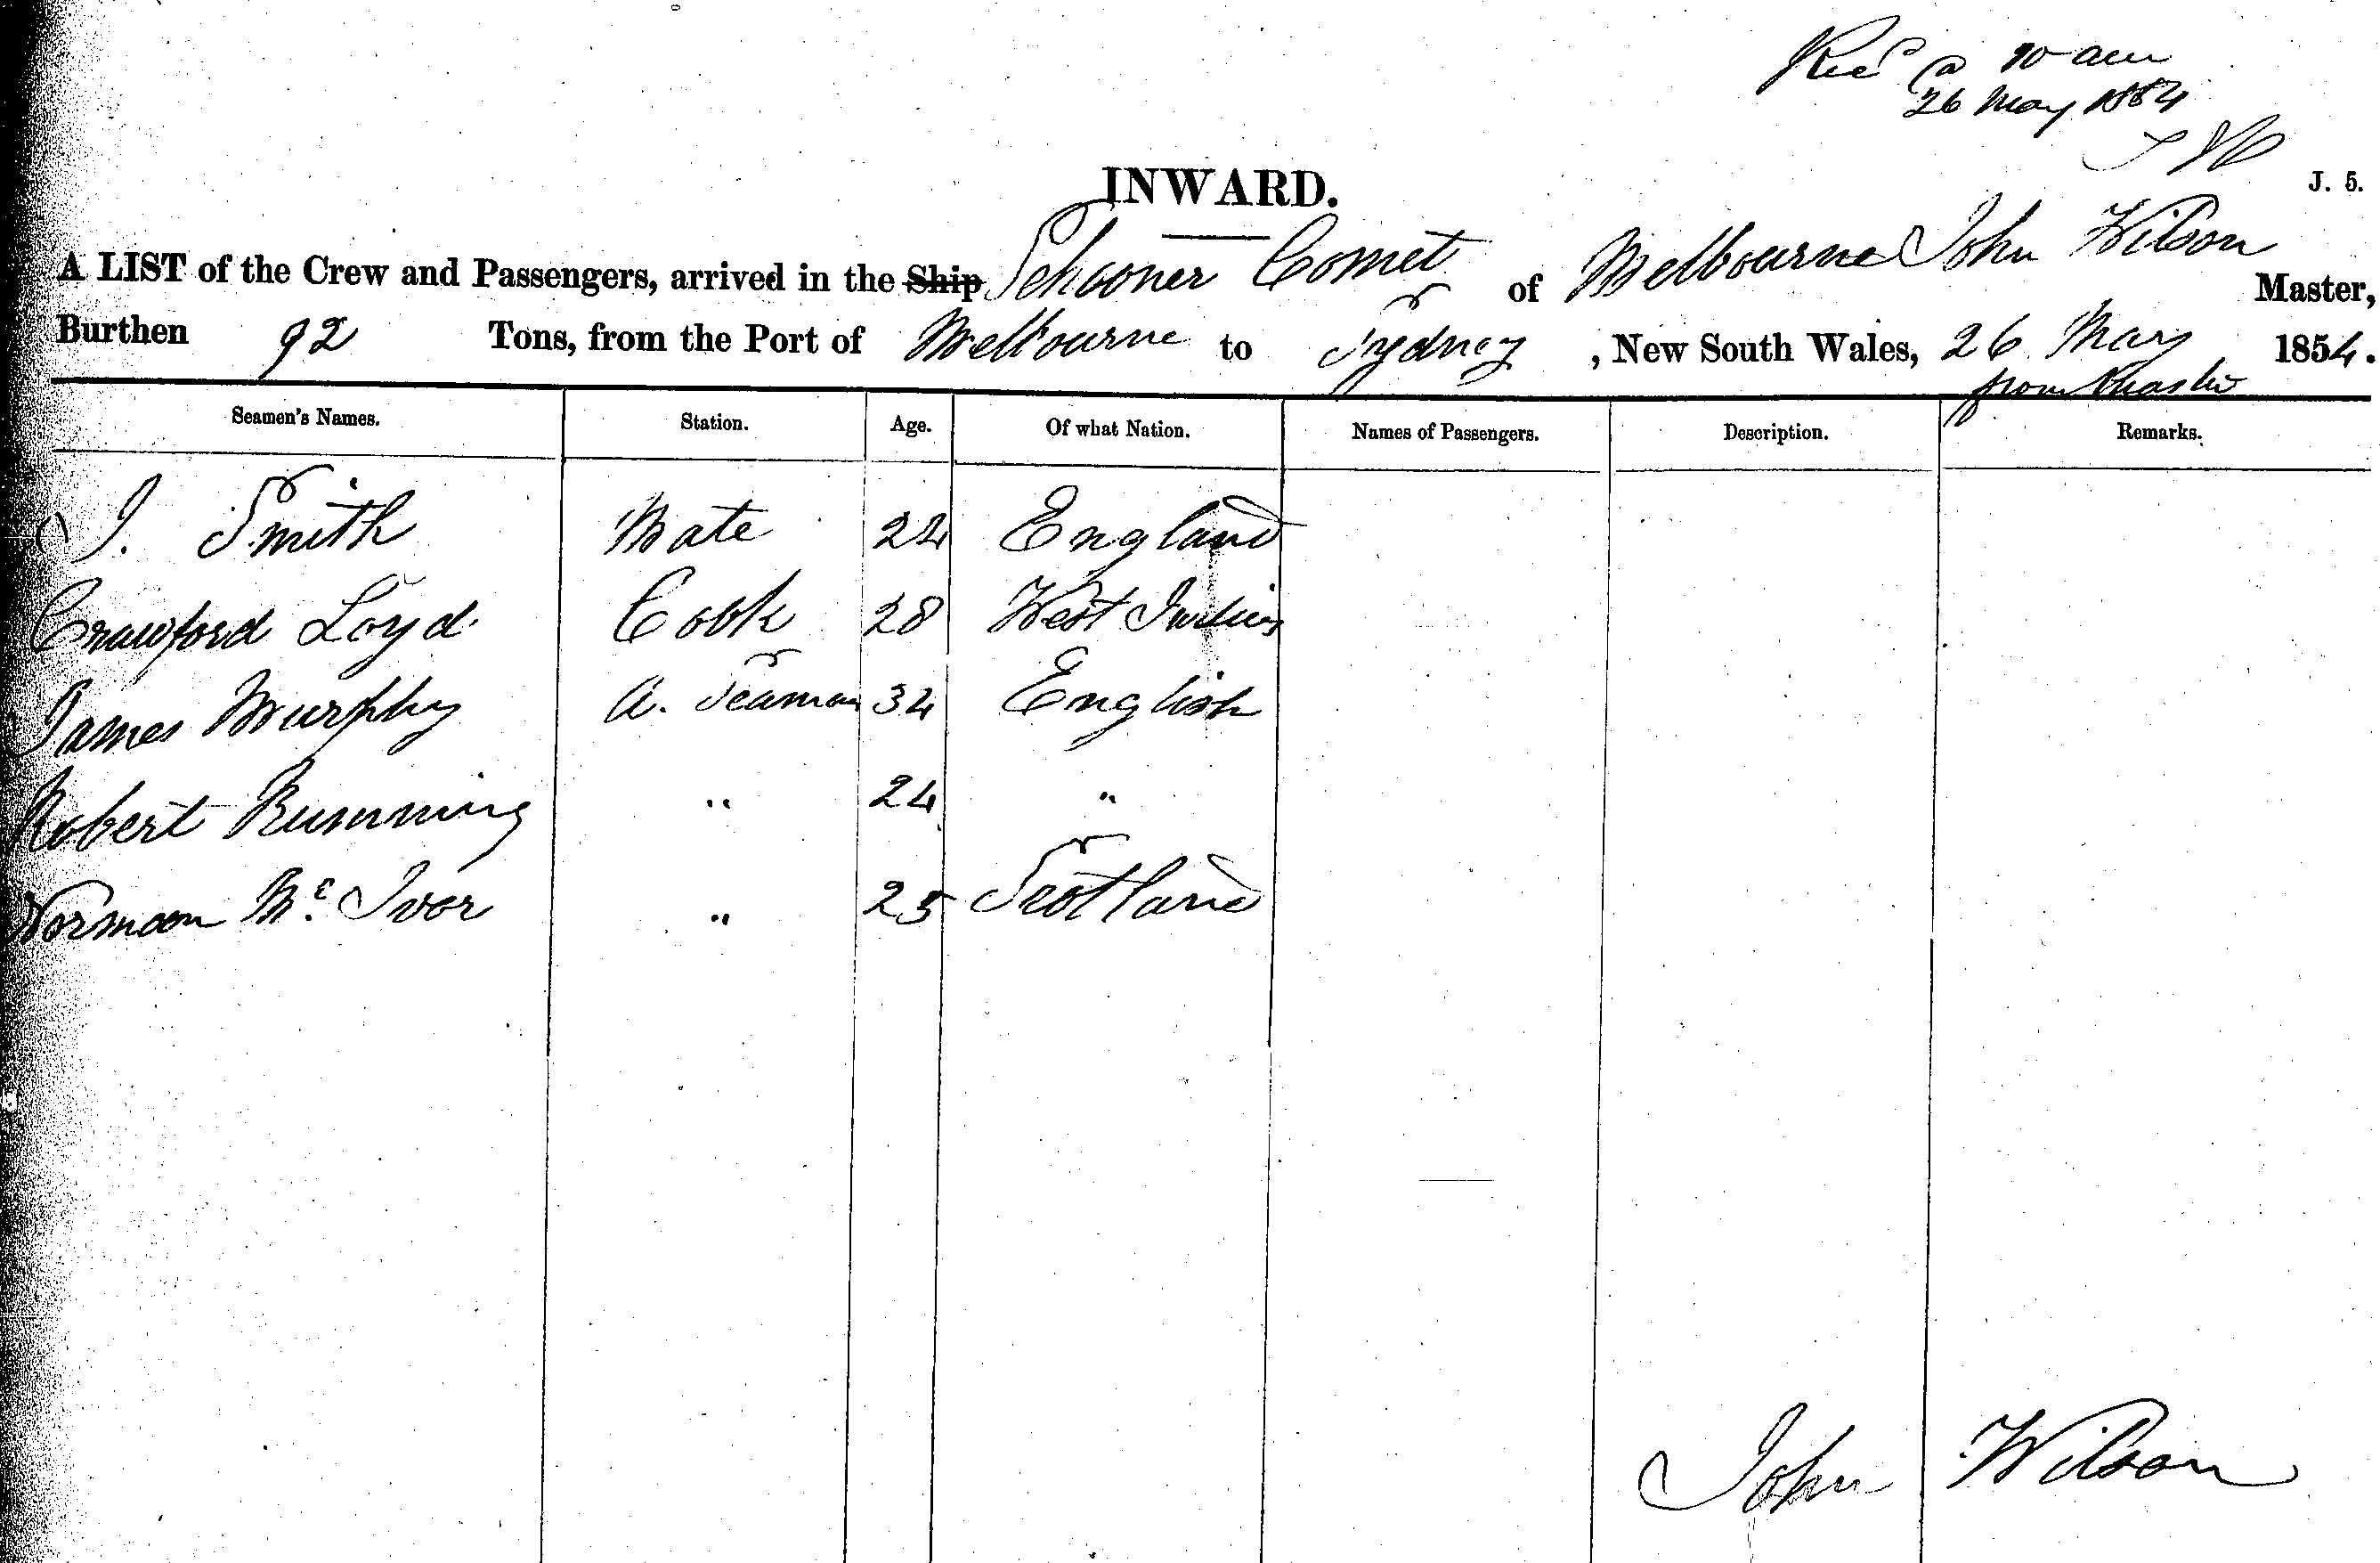 Recd @ 10 am
26 May 1854
INWARD.
J. 5.
A LIST of the Crew and Passengers, arrived in the Ship Schooner Comet of Melbourne John Wilson Master,
Burthen 92 Tons, from the Port of Melbourne to Sydney, New South Wales, 26 May 1854.
from
Seamen's Names. Station. Age. Of what Nation. Names of Passengers. Description. Remarks.
J. Smith Mate 24 England
Crawford Loyd Cook 28 West Indies
James Murphy A. Seaman 34 English
Robert Rumming " 24 "
Norman Mc Ivor " 25 Scotland
John Wilson